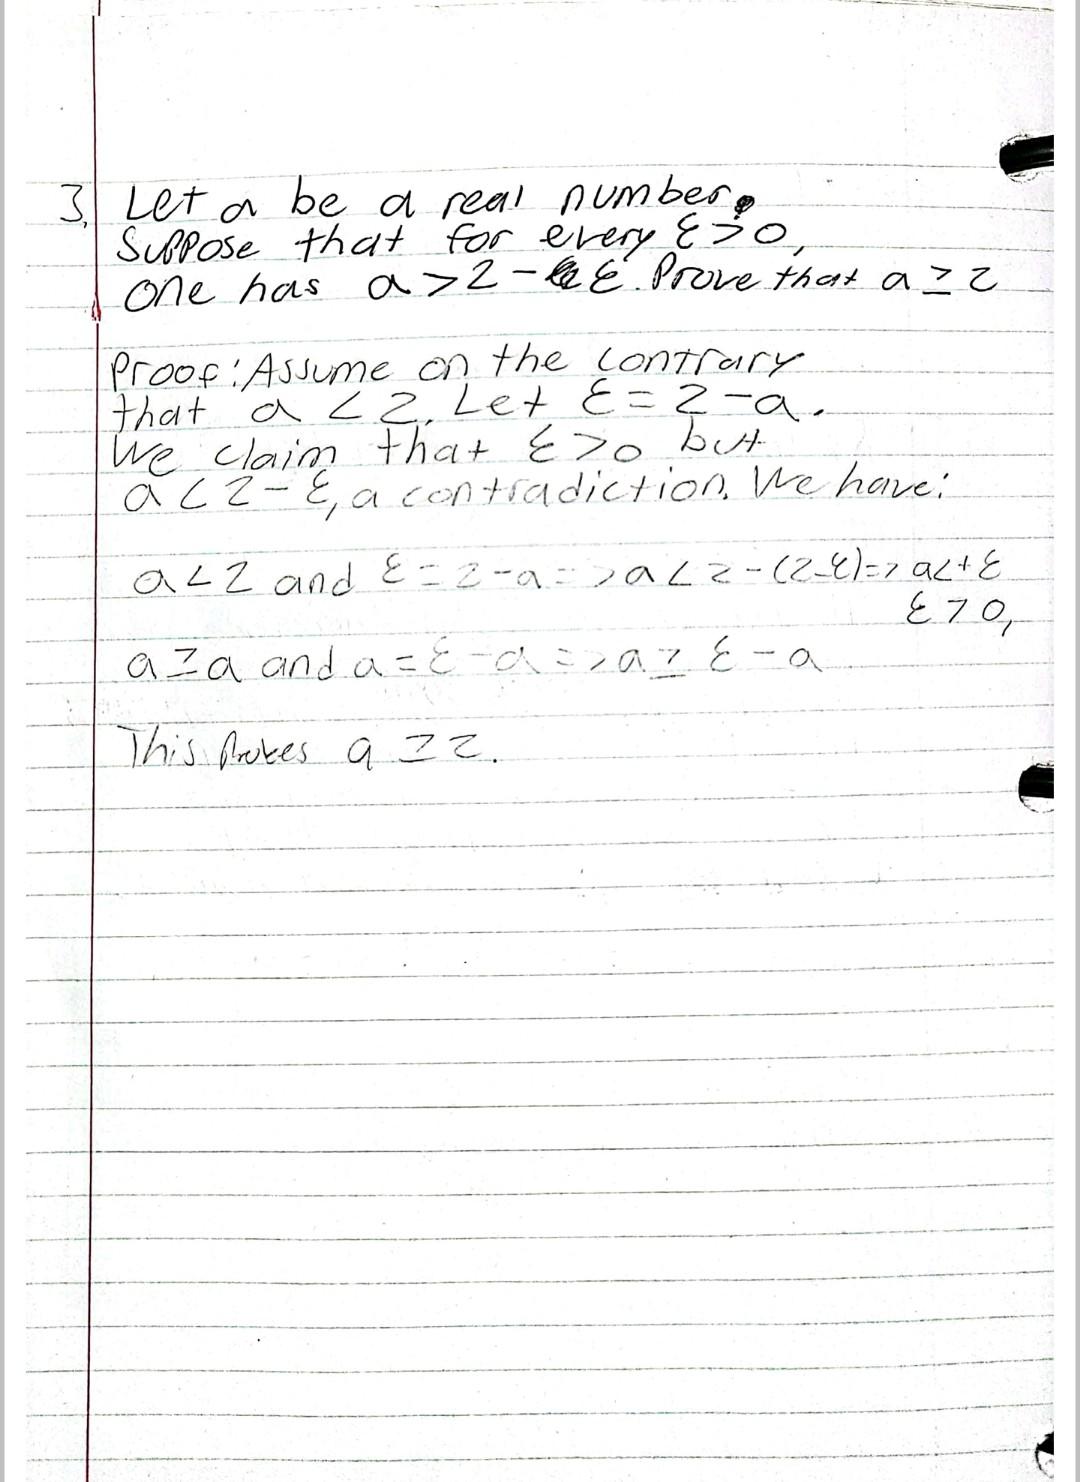 3. Let a be a real number.
Suppose that for every ε>0,
one has a>2-ε. Prove that a≥2
Proof: Assume on the contrary
that a<2. Let ε=2-a.
We claim that ε>0 but
a<2-ε, a contradiction. We have:
a<2 and ε=2-a=>a<2-(2-ε)=>a<+ε
ε>0,
a≥a and a=ε-a=>a≥ε-a
This proves a≥2.